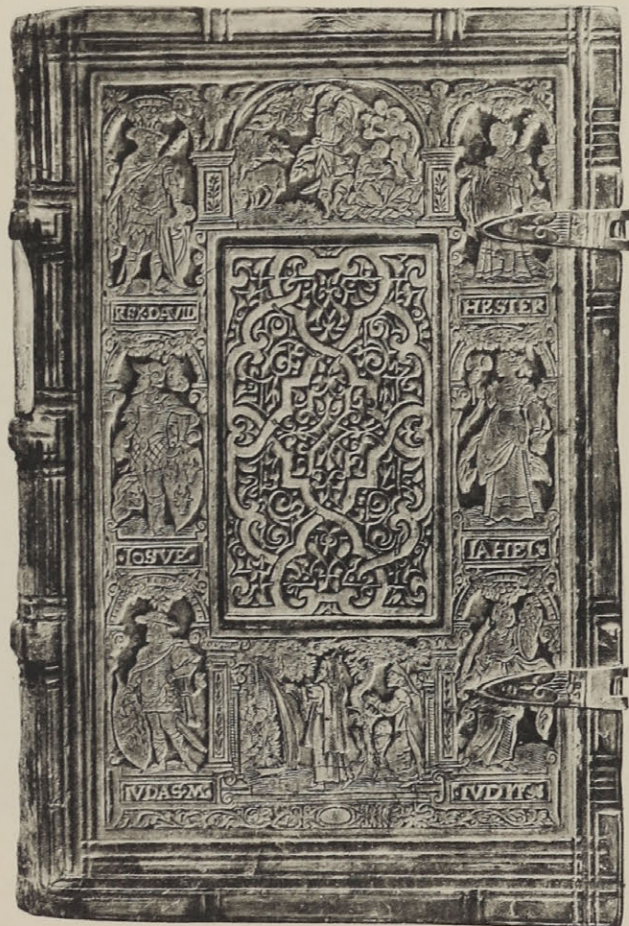 REX·DAVID
HESTER
·IOSVE·
IAHEL·
IVDAS·M·
·IVDIT·